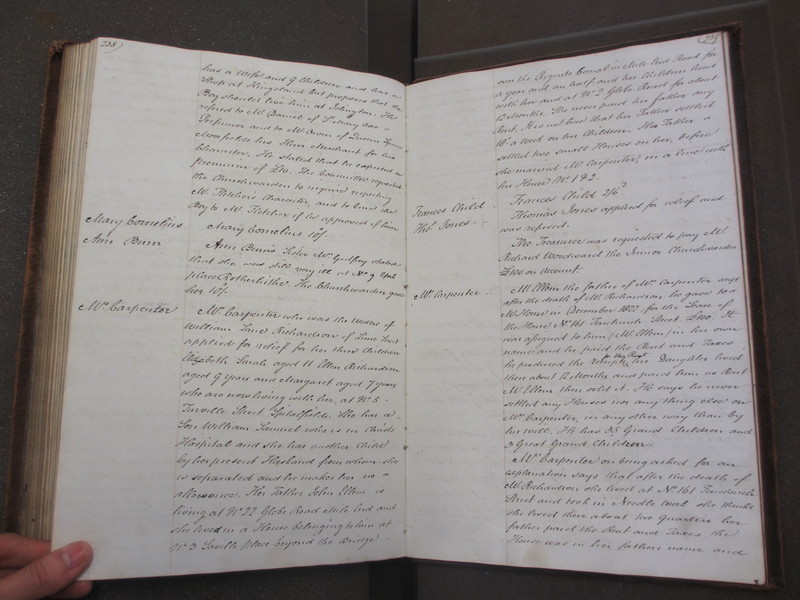 238)
has a Wife and 9 Children and has a
Shop at Kingsland but proposes that the
Boy should live him at Islington. He
refered to Mr. Daniel of
Perfumer and to Mr. Owen of Queen Square
Moorfields his Hair Merchant for his
Character. He stated that he expected a
premium of £10. The Committee requested
the Churchwarden to inquire respecting
Mr. Fletcher's Character, and to bind the
Boy to Mr. Fletcher if he approved of him
Mary Cornelius
Mary Cornelius 10/.
Ann Bunn
Ann Bunn's Sister Mrs. Godfrey stated
that she was still very ill at No. 9 York
place Rotherhithe. The Churchwarden gave
her 10/.
Mrs. Carpenter
Mrs. Carpenter who was the widow of
William Lane Richardson of Lime Street
applied for relief for her three Children
Elizabeth Sarah aged 11 Ellen Richardson
aged 9 years and Margaret aged 7 years
who are now living with her, at No. 5
Turville Street Spitalfields. She has a
Son William Samuel who is in Christs
Hospital and she has another Child
by her present Husband from whom she
is separated and he makes her no
allowance. Her Father John Ellem is
living at No. 22 Globe Road Mile End and
she lived in a House belonging to him at
No. 3 Saville place beyond the Bridge
239
over the Regents Canal in Mile End Road for
a year and an half and her Children lived
with her and at No. 2 Globe Road for about
12 Months. She never paid her father any
Rent. It is not true that her Father settled
10/. a week on her Children. Her Father
settled two small Houses on her, before
she married Mr. Carpenter, in a line with
his House No. 1 & 2.
Frances Child
Frances Child 2/6d
Thos. Jones
Thomas Jones applied for relief and
was refused.
The Treasurer was requested to pay Mr.
Richard Woodward the Junior Churchwarden
£100 on Account.
Mrs. Carpenter
Mr. Ellem the father of Mrs. Carpenter says
after the death of Mr. Richardson he gave
in December 1822 for the Lease of
the House No. 161 Fenchurch Street £200. It
was assigned to him (Mr. Ellem) in his own
name and he paid the Rent and Taxes
he produced the receipts for the Rent his Daughter lived
there about 12 Months and paid him no Rent
Mr. Ellem then sold it. He says he never
settled any Houses nor any thing else on
Mrs. Carpenter, in any other way than by
his will. He has 35 Grand Children and
3 Great Grand Children.
Mrs. Carpenter on being asked for an
explanation says that after the death of
Mr. Richardson she lived at No. 161 Fenchurch
Street and took in Needle work she thinks
she lived there about two quarters her
father paid the Rent and Taxes the
House was in her fathers name and